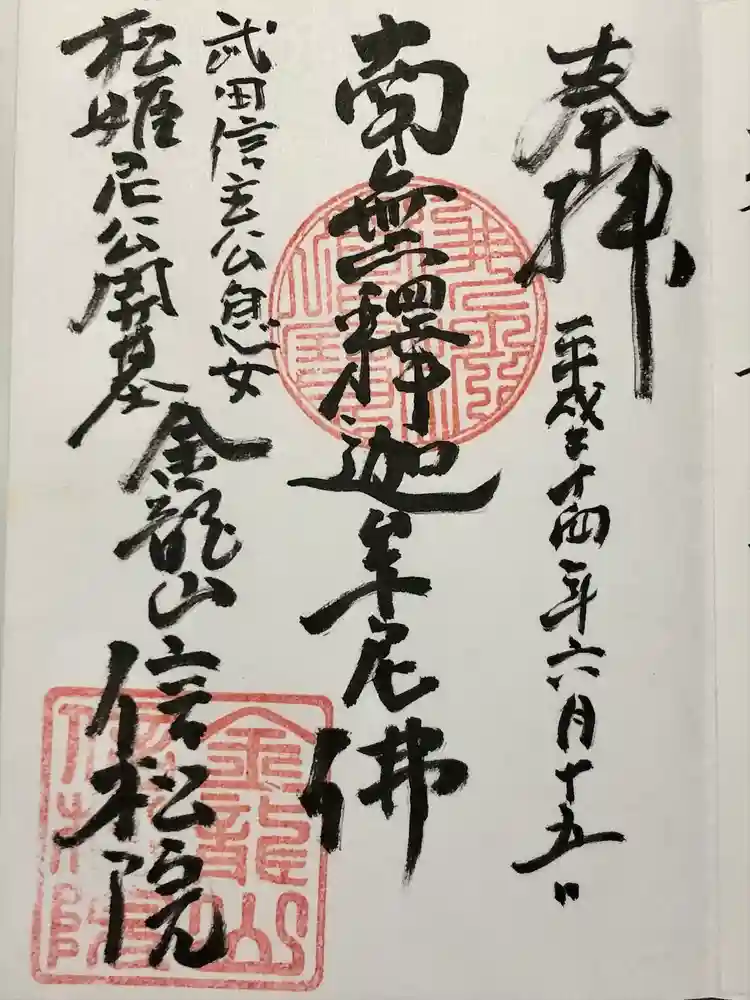 奉拝
平成二十四年六月十五日
南無釋迦牟尼佛
武田信玄公息女
松姫尼公開基
金龍山
信松院
金龍山信松院